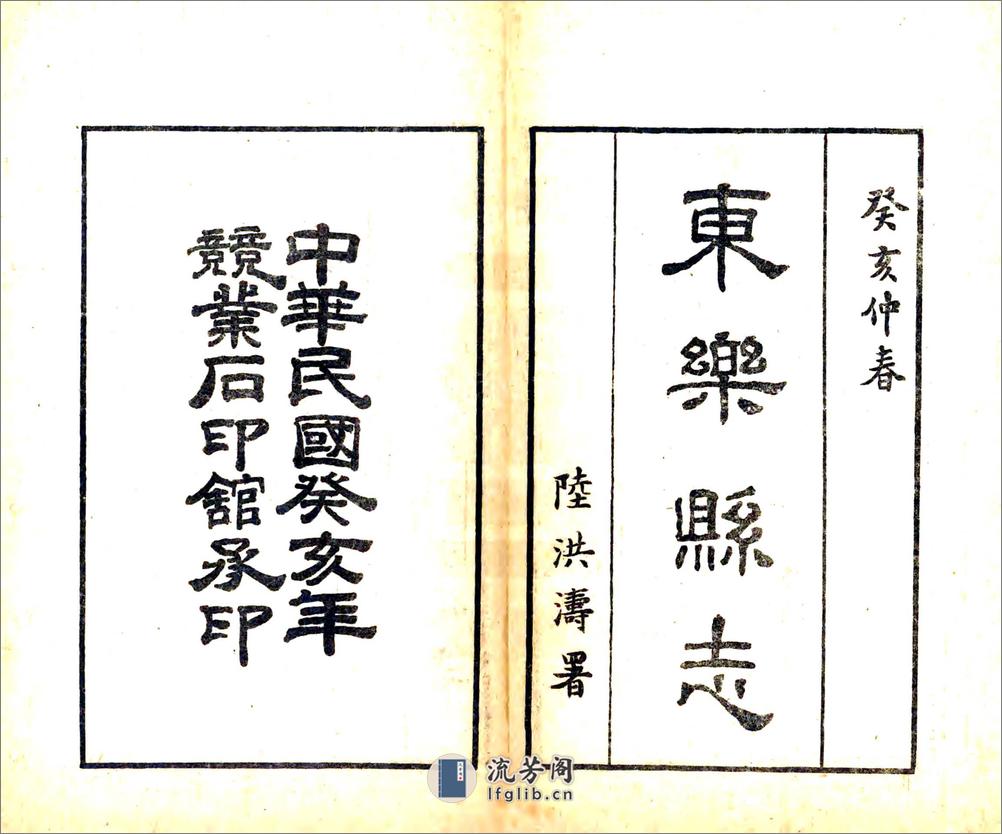 癸亥仲春
東樂縣志
陸洪濤署
中華民國癸亥年
競業石印舘承印
流芳阁
lfglib.cn